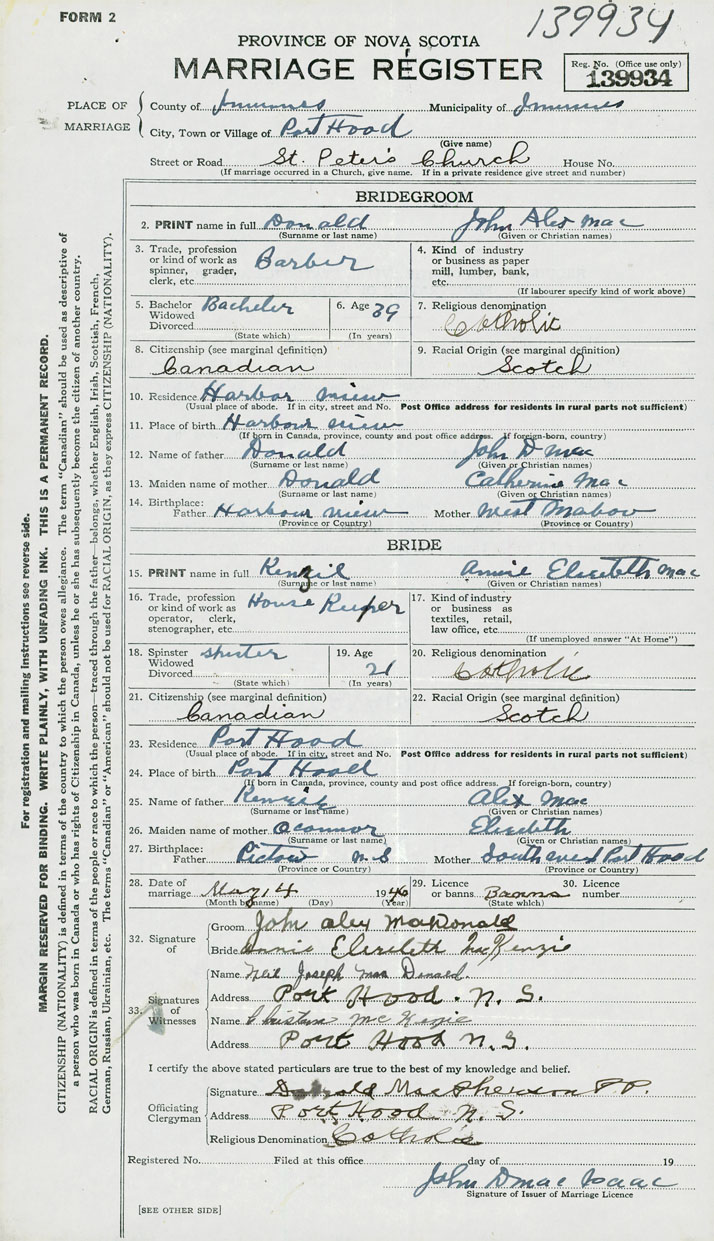 FORM 2
139934
PROVINCE OF NOVA SCOTIA
MARRIAGE REGISTER
Reg. No. (Office use only)
139934
PLACE OF MARRIAGE
County of Inverness Municipality of Inverness
City, Town or Village of Port Hood
(Give name)
Street or Road St. Peter's Church House No.
(If marriage occurred in a Church, give name. If in a private residence give street and number)
BRIDEGROOM
2. PRINT name in full Donald John Alex Mac
(Surname or last name) (Given or Christian names)
3. Trade, profession or kind of work as spinner, grader, clerk, etc. Barber
4. Kind of industry or business as paper mill, lumber, bank, etc.
(If labourer specify kind of work above)
5. Bachelor Widowed Divorced Bacheler
(State which)
6. Age 39
(In years)
7. Religious denomination Catholic
8. Citizenship (see marginal definition)
Canadian
9. Racial Origin (see marginal definition)
Scotch
10. Residence Harbor view
(Usual place of abode. If in city, street and No. Post Office address for residents in rural parts not sufficient)
11. Place of birth Harbour view
(If born in Canada, province, county and post office address. If foreign-born, country)
12. Name of father Donald John D Mac
(Surname or last name) (Given or Christian names)
13. Maiden name of mother Donald Catherine Mac
(Surname or last name) (Given or Christian names)
14. Birthplace: Father Harbour view Mother West Mabou
(Province or Country) (Province or Country)
BRIDE
15. PRINT name in full Kenzil Annie Elizebeth Mac
(Surname or last name) (Given or Christian names)
16. Trade, profession or kind of work as operator, clerk, stenographer, etc. House Keeper
17. Kind of industry or business as textiles, retail, law office, etc.
(If unemployed answer "At Home")
18. Spinster Widowed Divorced
(State which)
19. Age 21
(In years)
20. Religious denomination Catholic
21. Citizenship (see marginal definition)
Canadian
22. Racial Origin (see marginal definition)
Scotch
23. Residence Port Hood
(Usual place of abode. If in city, street and No. Post Office address for residents in rural parts not sufficient)
24. Place of birth Port Hood
(If born in Canada, province, county and post office address. If foreign-born, country)
25. Name of father Alex Mac
(Surname or last name) (Given or Christian names)
26. Maiden name of mother Oconnor Elizebeth
(Surname or last name) (Given or Christian names)
27. Birthplace: Father Pictow N.S Mother South west Port Hood
(Province or Country) (Province or Country)
28. Date of marriage May 14 1946
(Month by name) (Day) (Year)
29. Licence or banns Banns
(State which)
30. Licence number
32. Signature of
Groom John Alex MacDonald
Bride Annie Elizebeth MacKenzie
33. Signatures of Witnesses
Name Neil Joseph Mac Donald
Address Port Hood. N. S.
Name
Address Port Hood N. S.
I certify the above stated particulars are true to the best of my knowledge and belief.
Officiating Clergyman
Signature Donald MacPherson P.P.
Address Port Hood N. S.
Religious Denomination Catholic
Registered No. Filed at this office day of 19
John D Mac Isaac
Signature of Issuer of Marriage Licence
[SEE OTHER SIDE]
For registration and mailing instructions see reverse side.
MARGIN RESERVED FOR BINDING. WRITE PLAINLY, WITH UNFADING INK. THIS IS A PERMANENT RECORD.
CITIZENSHIP (NATIONALITY) is defined in terms of the country to which the person owes allegiance. The term "Canadian" should be used as descriptive of
a person who was born in Canada or who has rights of Citizenship in Canada, unless he or she has subsequently become the citizen of another country.
RACIAL ORIGIN is defined in terms of the people or race to which the person—traced through the father—belongs, whether English, Irish, Scottish, French,
German, Russian, Ukrainian, etc. The terms "Canadian" or "American" should not be used for RACIAL ORIGIN, as they express CITIZENSHIP (NATIONALITY).